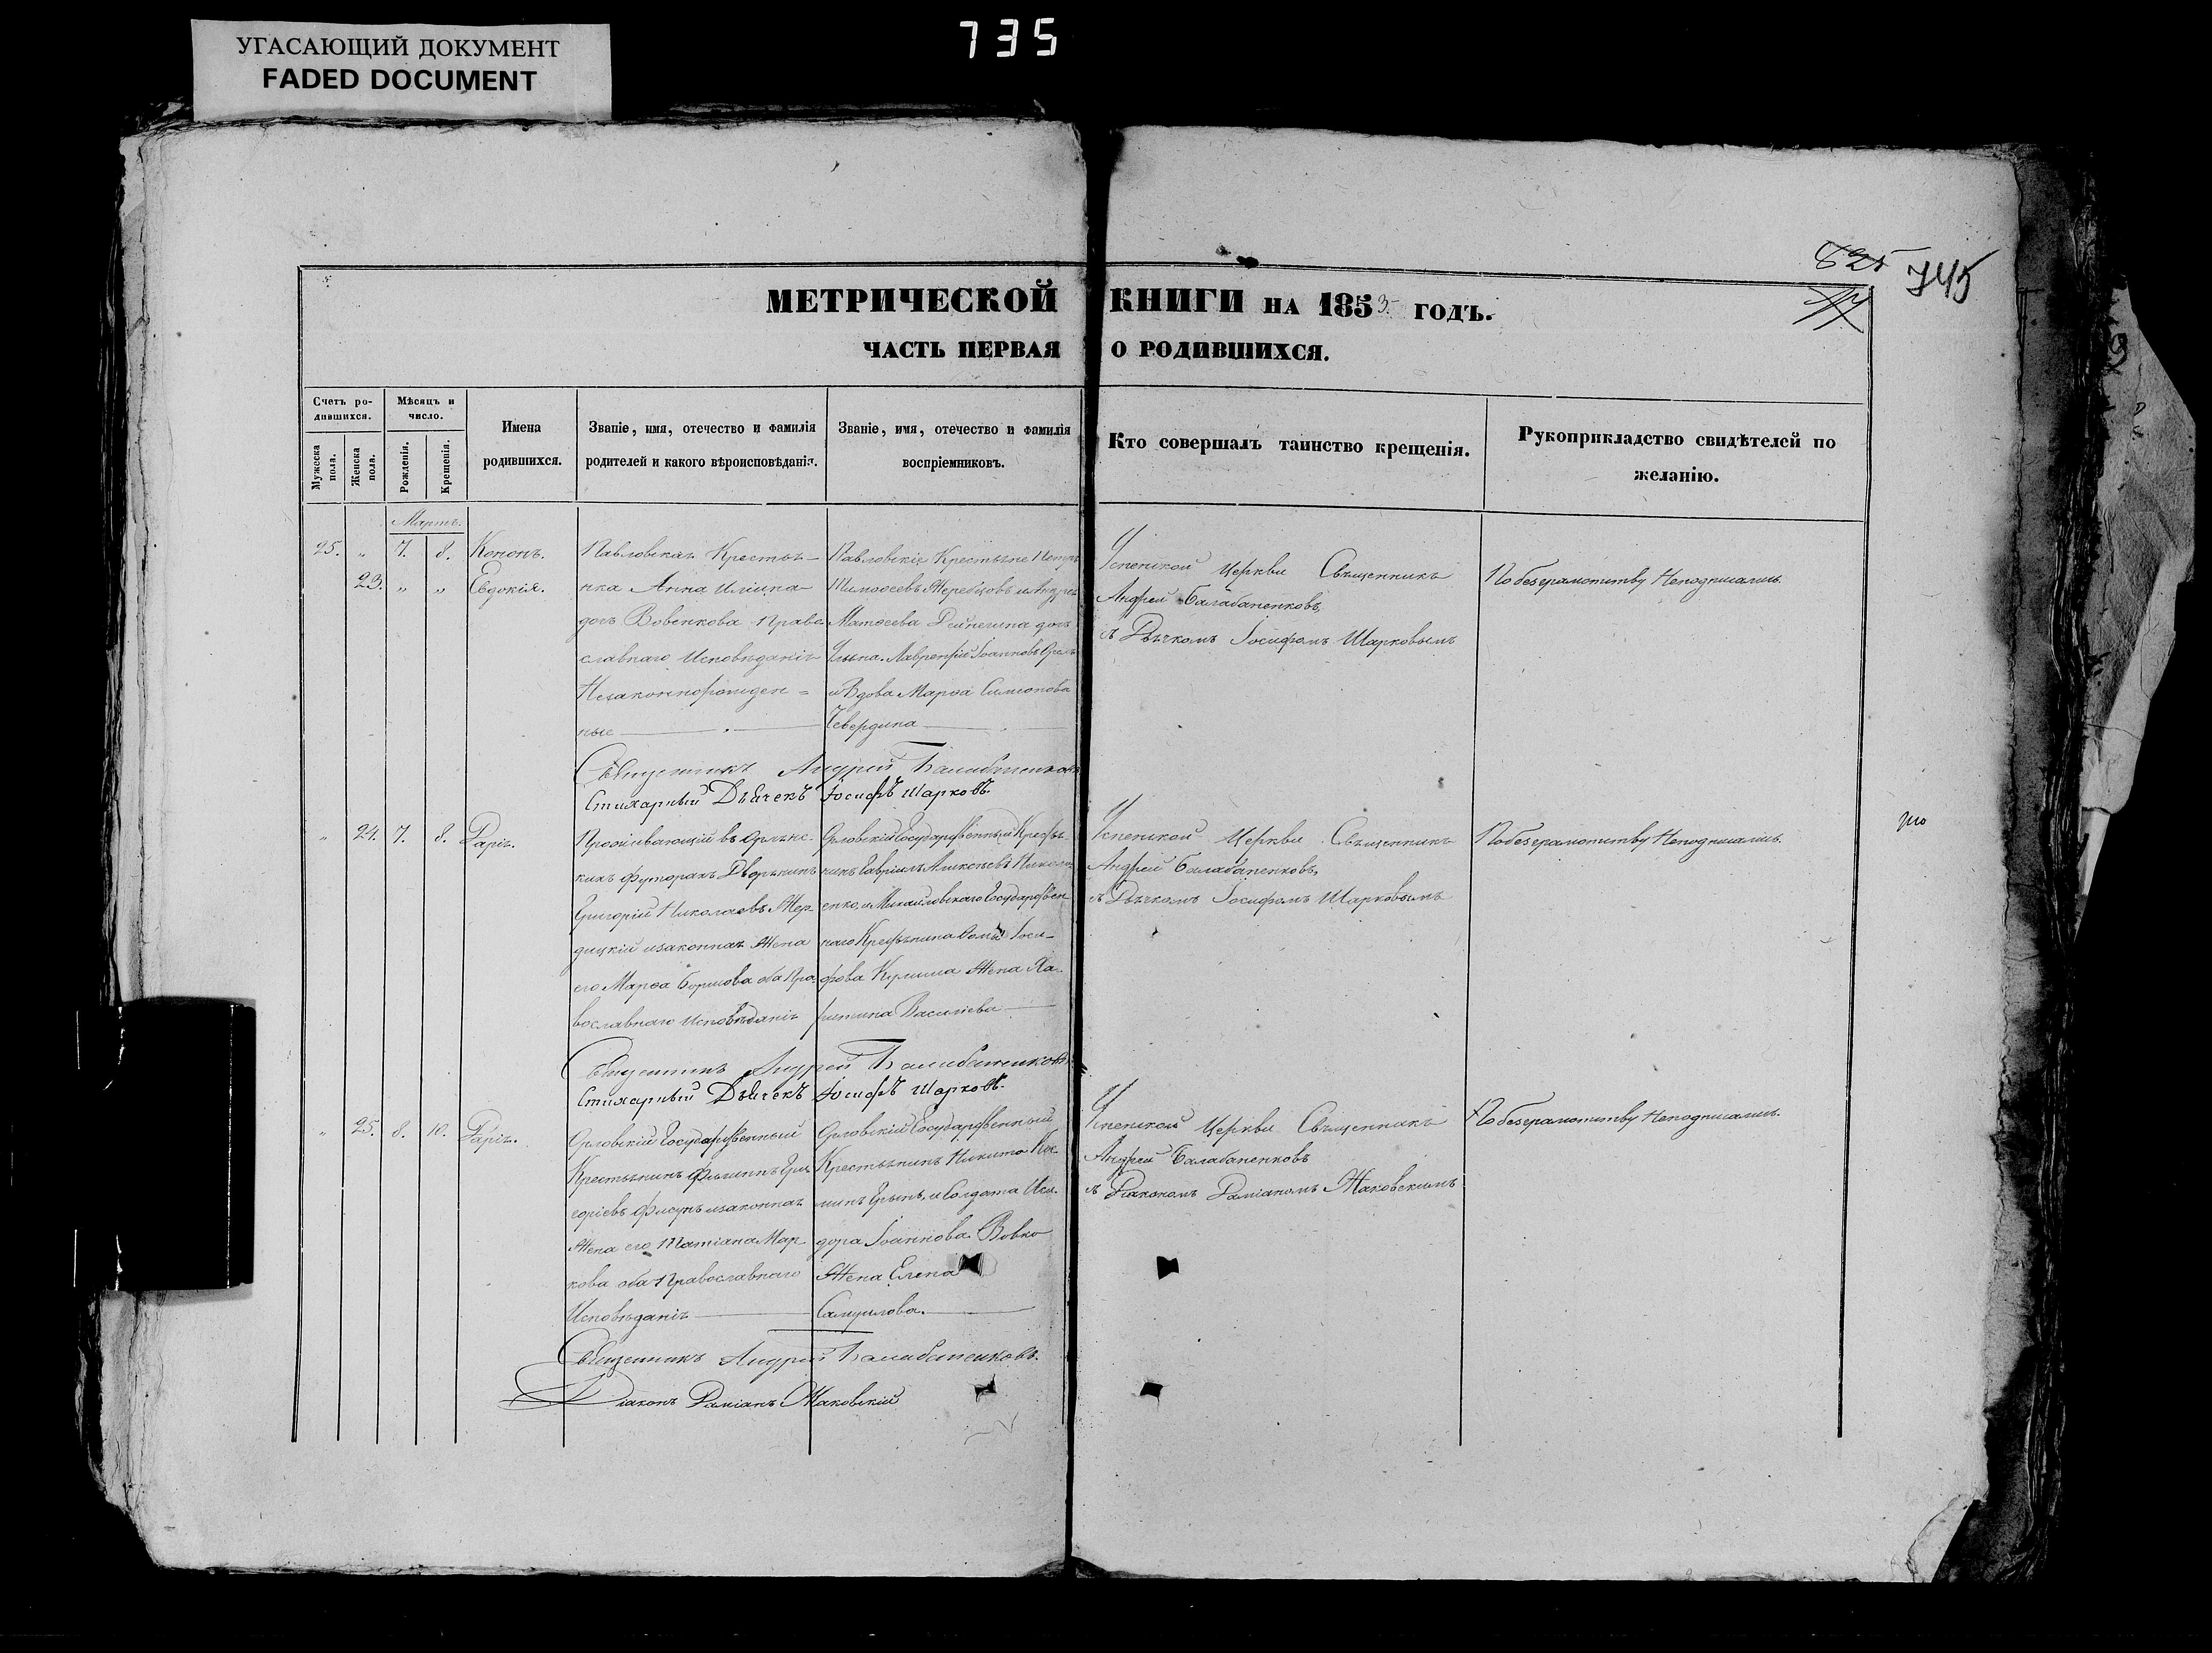 УГАСАЮЩИЙ ДОКУМЕНТ
FADED DOCUMENT
735
825
745
МЕТРИЧЕСКОЙ КНИГИ НА 1853 ГОДЪ.
ЧАСТЬ ПЕРВАЯ О РОДИВШИХСЯ.
Счетъ ро-
дившихся.
Мужеска пола.
Женска пола.
Мѣсяцъ и
число.
Рожденія.
Крещенія.
Имена
родившихся.
Званіе, имя, отечество и фамилія
родителей и какого вѣроисповѣданія.
Званіе, имя, отечество и фамилія
воспріемниковъ.
Кто совершалъ таинство крещенія.
Рукоприкладство свидѣтелей по
желанію.
Мартъ.
25. " 7. 8. Кононъ.
23. " " Евдокія.
Павловская Крестья-
нка Анна
дочь Вовенкова Право
славнаго Исповѣданія
Незаконнорожден =
ные
Павловскіе Крестьяне Петръ
Тимоѳеевъ Жеребцовъ и Андрей
Матѳеева дочь
Лаврентій Іоанновъ
и Вдова Марѳа Симеонова
Чевердина
Успенской Церкви Священникъ
Андрей Балабаненковъ,
съ Дьячкомъ Іосифомъ Шарковымъ
По безграмотству Неподписались.
Священникъ Андрей Балабаненковъ
Стихарный Дьячекъ Іосифъ Шарковъ.
" 24. 7. 8. Дарія.
Проживающій въ
кихъ Футорахъ Дворянинъ
Григорій Николаевъ Жер
дицкій и законная Жена
его Марѳа Борисова оба Пра-
вославнаго Исповѣданія
Орловскій Государственный Крестья-
нинъ Гавріилъ Алексѣевъ
енко, и Михайловскаго Государствен
наго Крестьянина Ѳомы Іоси-
фова Жена Ха-
ритина Василіева
Успенской Церкви Священникъ
Андрей Балабаненковъ,
съ Дьячкомъ Іосифомъ Шарковымъ
По безграмотству Неподписались.
Священникъ Андрей Балабаненковъ.
Стихарный Дьячекъ Іосифъ Шарковъ.
" 25. 8. 10. Дарія.
Орловскій Государственный
Крестьянинъ Филиппъ Гри
горіевъ и законная
Жена его Татіана Мар
кова оба Православнаго
Исповѣданія
Орловскій Государственный
Крестьянинъ Никита
и Солдата Иси-
дора Іоаннова Вовко
Жена Елена
Самуилова.
Успенской Церкви Священникъ
Андрей Балабаненковъ
съ Діакономъ Даміаномъ Маковскимъ
По безграмотству Неподписались.
Священникъ Андрей Балабаненковъ.
Діаконъ Даміанъ Маковскій